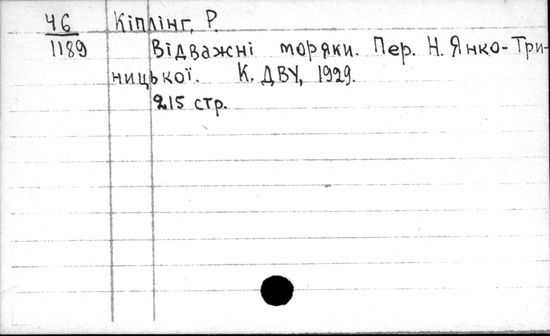 46 Кіплінг, Р.
1189 Відважні моряки. Пер. Н. Янко-Три-
ницької. К. ДВУ, 1929.
215 стр.